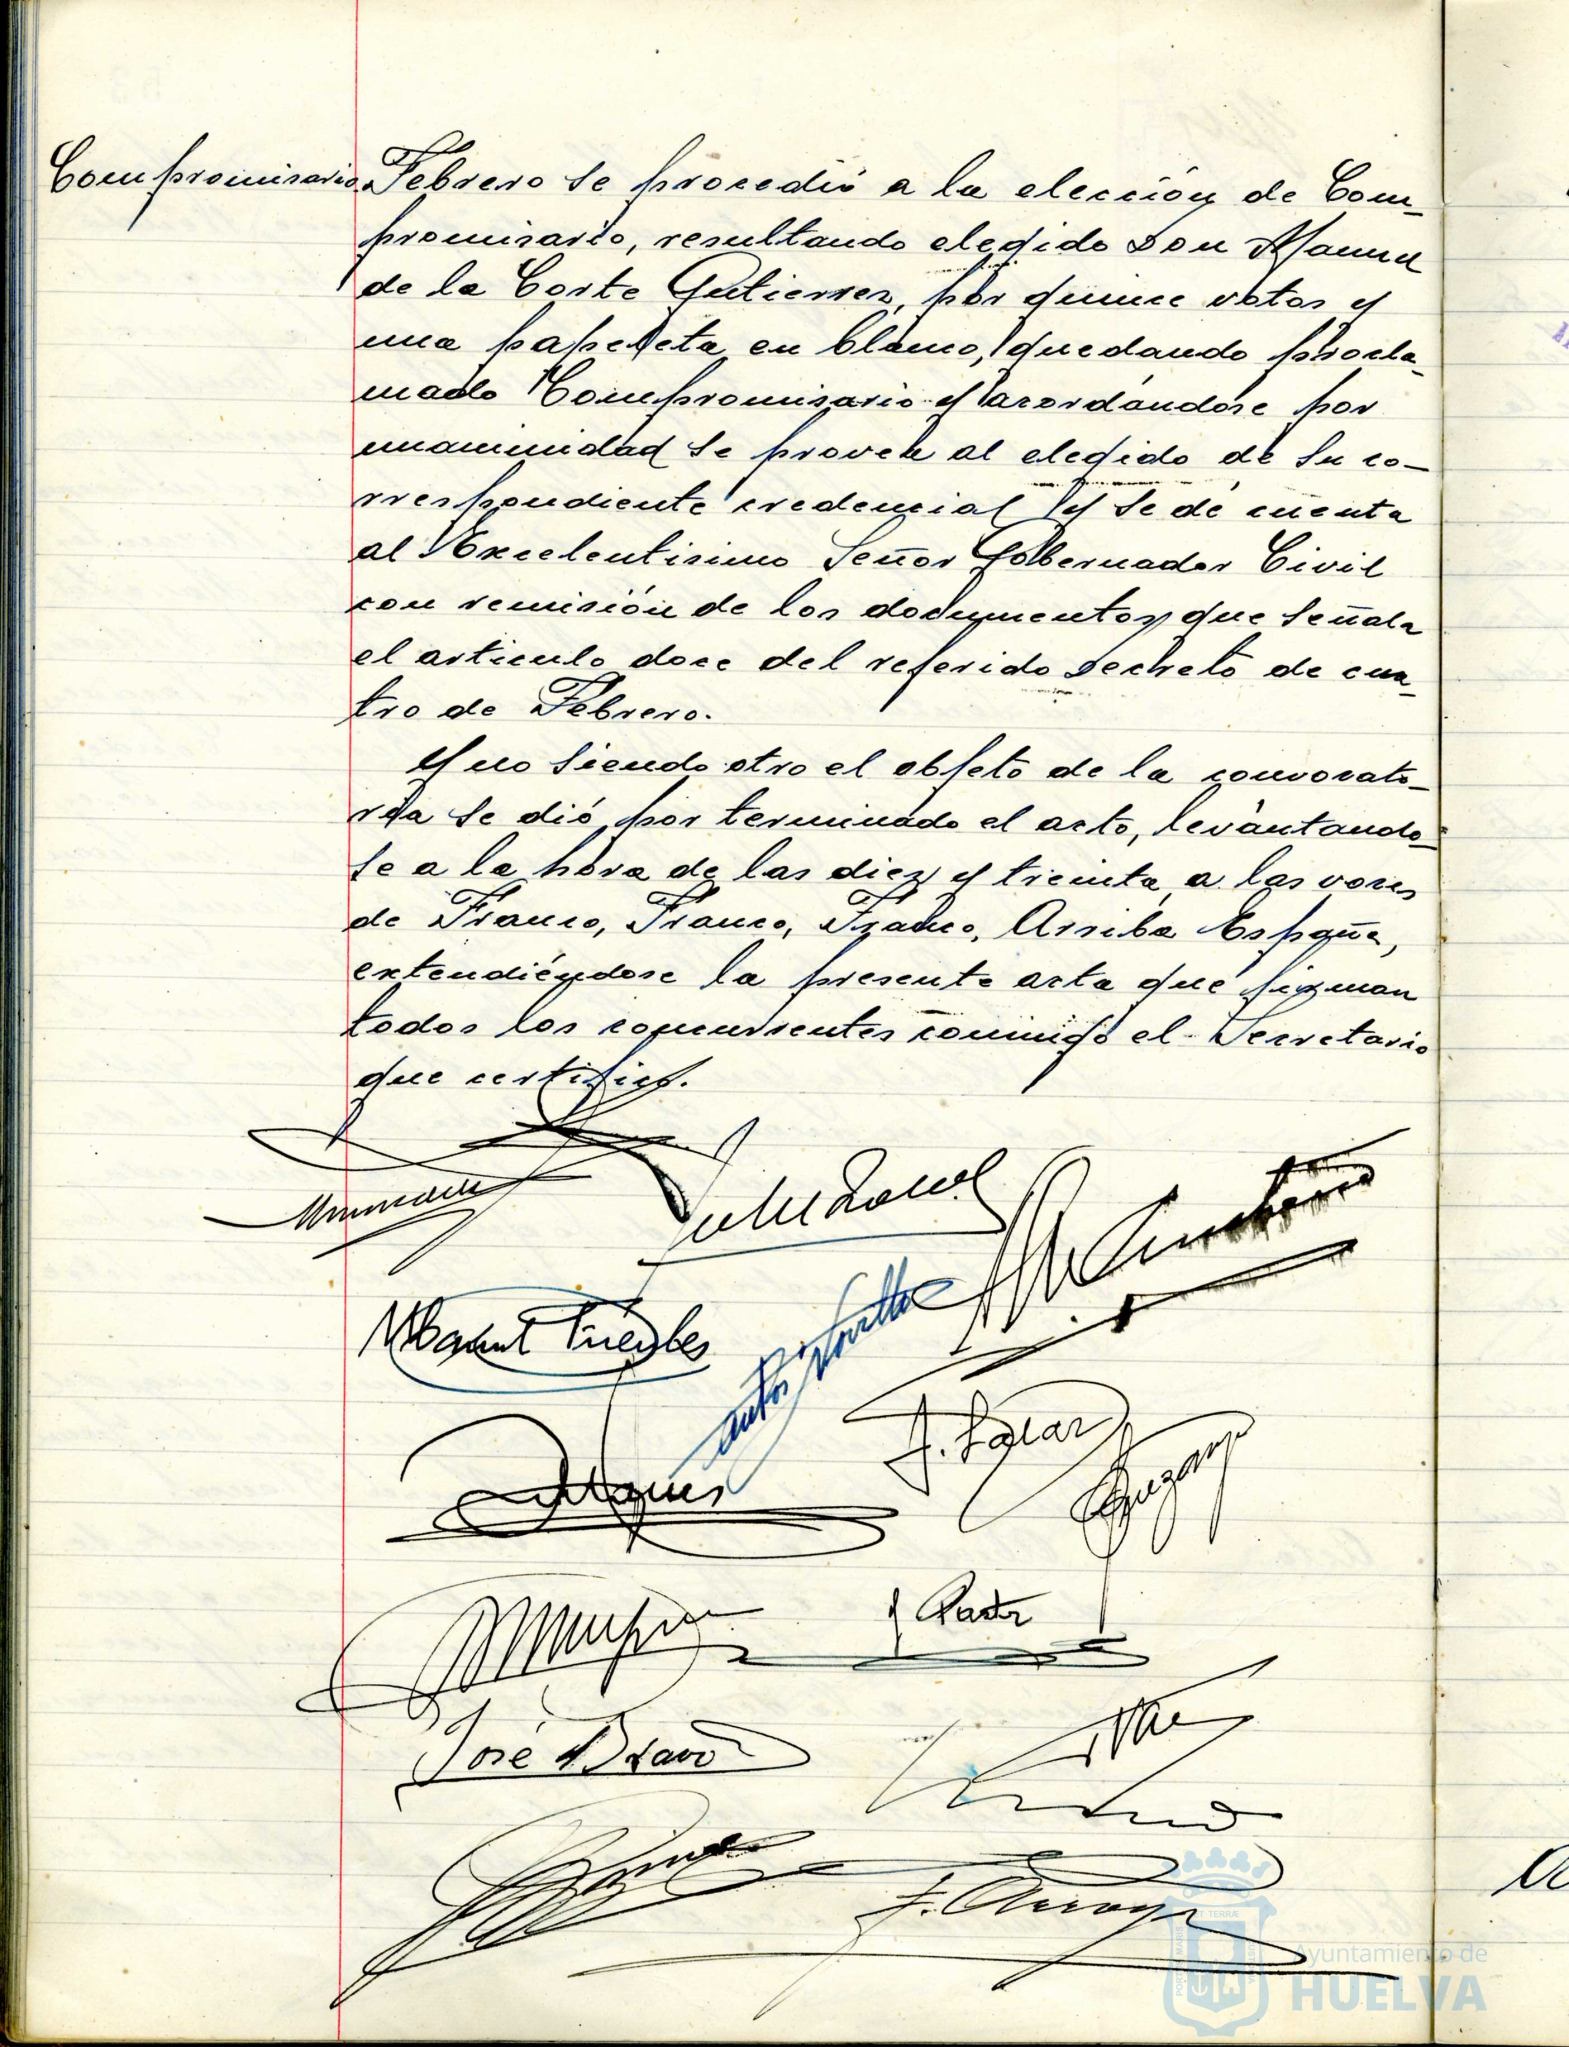 Compromisario
Febrero se procedió a la elección de Com-
promisario, resultando elegido Don Manuel
de la Corte Gutierrez, por quince votos y
una papeleta en blanco, quedando procla-
mado Compromisario y acordándose por
unanimidad se provea al elegido de su co-
rrespondiente credencial y se dé cuenta
al Excelentisimo Señor Gobernador Civil
con remisión de los documentos que señala
el articulo doce del referido Decreto de cua-
tro de Febrero.
Y no siendo otro el objeto de la convocato-
ria se dió por terminado el acto, levantando-
se a la hora de las diez y treinta a las voces
de Franco, Franco, Franco, Arriba España,
extendiéndose la presente acta que firman
todos los concurrentes conmigo el Secretario
que certifico.
José Bravo
F. Arroyo
Ayuntamiento de
HUELVA